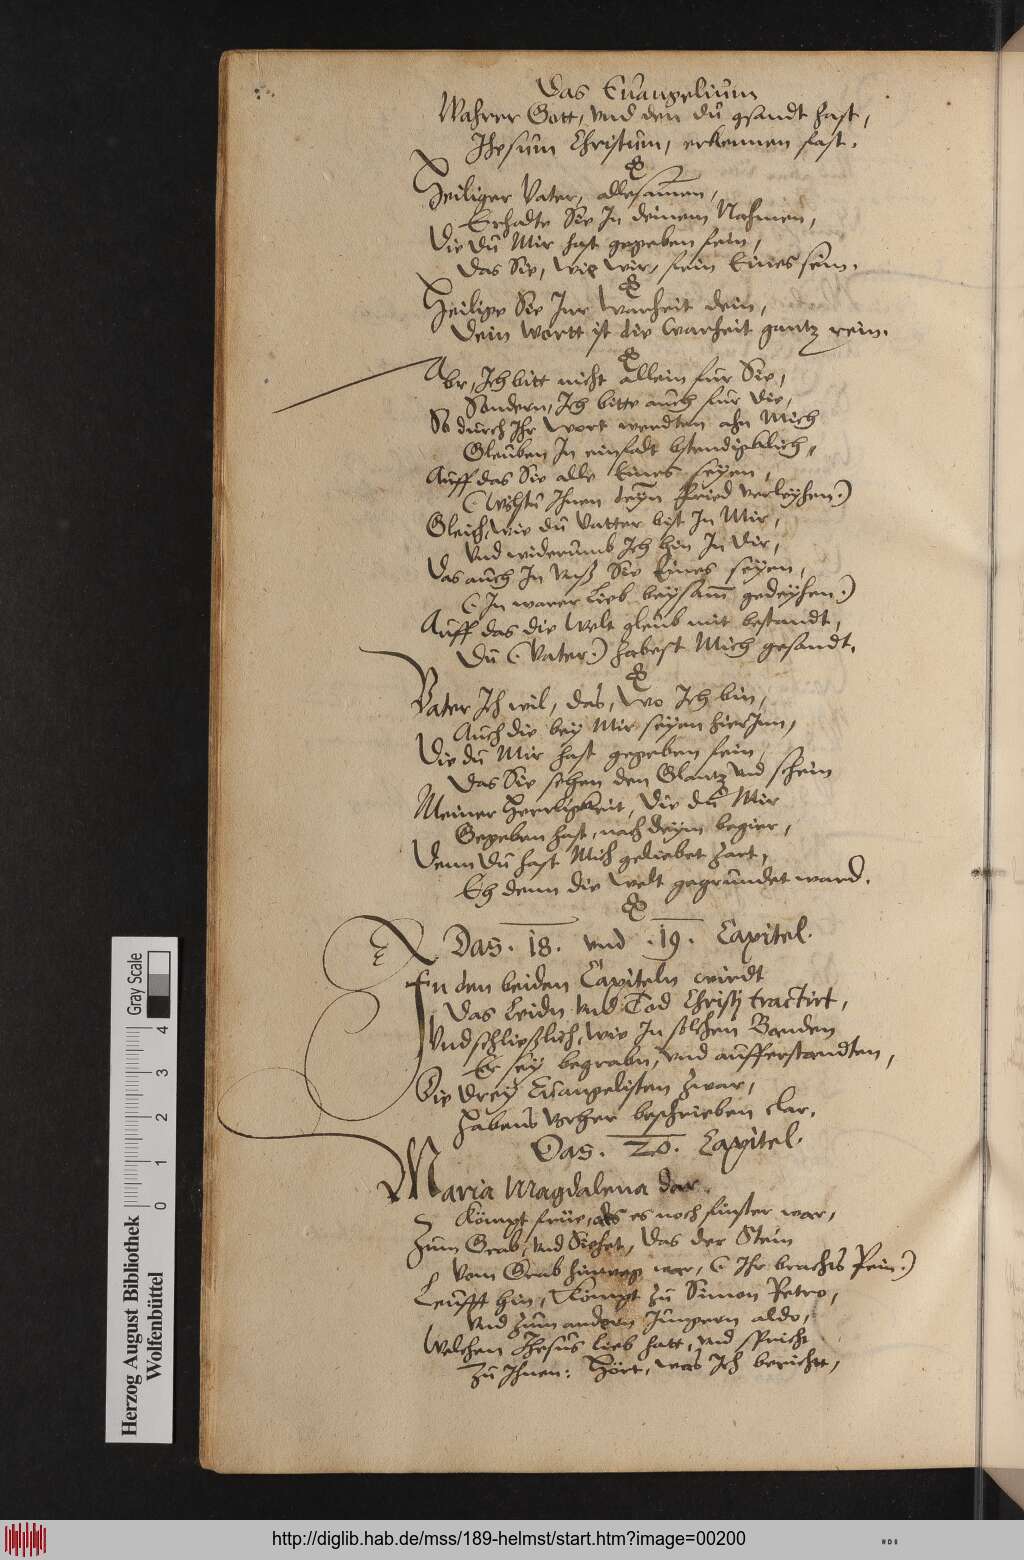 Das Euangelium
Wahrer Gott, vnd den du gsandt hast,
Jhesum Christum, erkennen fast.
Heiliger Vater, allesammen,
Erhadte Sie In deinem Nahmen,
Die du Mir hast gegeben fein,
Das Sie, wie wir, fein Eines sein.
Heilige Sie Inn Warheit dein,
Dein Wortt ist die Warheit gantz rein.
Abr, Ich bitt nicht allein fur Sie,
Sondern, Ich bitte auch fur die,
So durch Ihr Wort werdten ahn Mich
Gleuben In einfalt bstendigklich,
Auff das Sie alle Eines seyen,
(Wolstu Ihnen deyn Fried verleyhen.)
Gleich, wie du Vatter bist In Mir,
Vnd widerumb Ich bin In Dir,
Das auch In Vnß Sie Eines seyen,
(In warer Lieb beysamm gedeyhen.)
Auff das die Welt gleub mit bestandt,
Du (Vater.) habest Mich gesandt.
Vater Ich wil, das, Wo Ich bin,
Auch die bey Mir seyen hierInn,
Die du Mir hast gegeben fein,
Das Sie sehen den Glantz vnd schein
Meiner Herrligkeit, Die du Mir
Gegeben hast, nach deym begier,
Denn Du hast Mich geliebet zart,
Eh denn die Welt gegrundet ward.
Das. 18. vnd .19. Capitel.
In den beiden Capiteln wirdt
Das Leidn vnd Tod Christj tractirt,
Vnd schließlich, wie In solchen Banden
Er sey begrabn, vnd aufferstandten,
Die drey Euangelisten zwar,
Habens vorher beschrieben clar.
Das. 20. Capitel.
Maria Magdalena dar
Kömpt früe, als es noch finster war,
Zum Grab, vnd Siehet, Das der Stein
Vom Grab hinweg war, (Ihr brachts Pein.)
Leufft hin, Kömpt zu Simon Petro,
Vnd zum andern Jungern aldo,
Welchen Jhesus lieb hatt, vnd spricht
Zu Ihnen: Hört, was Ich bericht,
Herzog August Bibliothek
Wolfenbüttel
Gray Scale
0 1 2 3 4
http://diglib.hab.de/mss/189-helmst/start.htm?image=00200